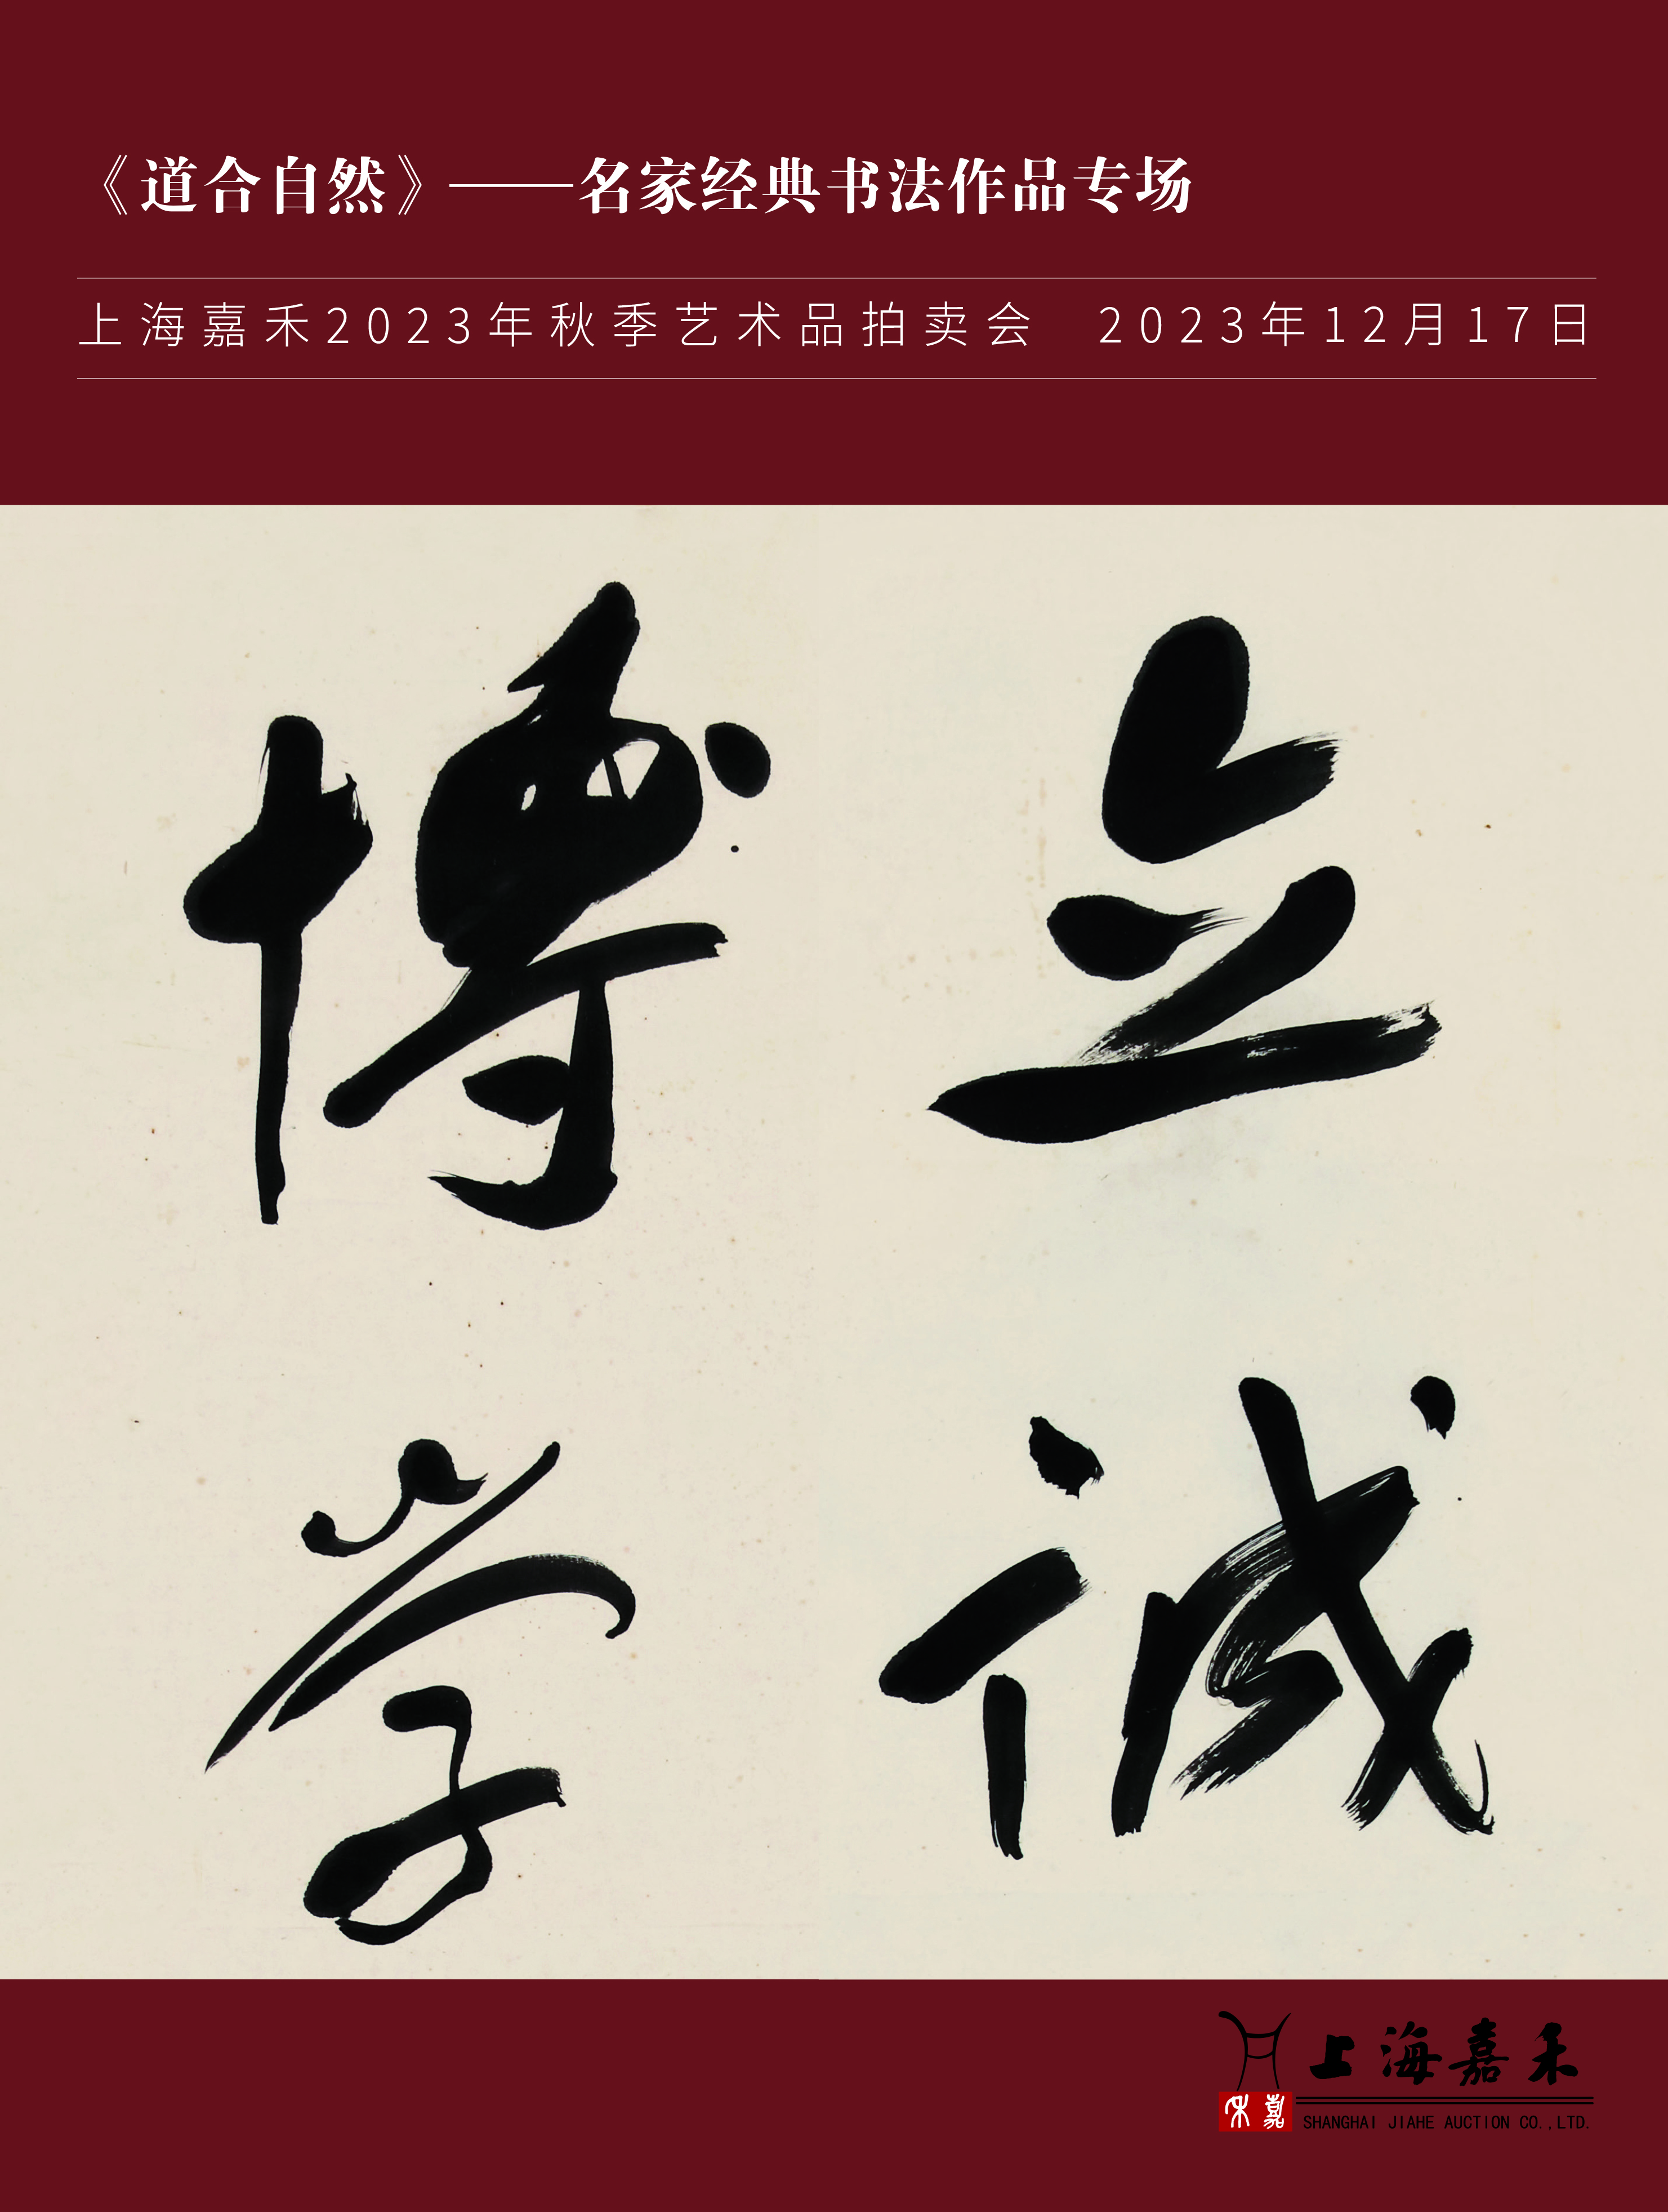 《道合自然》——名家经典书法作品专场
上海嘉禾2023年秋季艺术品拍卖会 2023年12月17日
立诚
博学
上海嘉禾
嘉禾
SHANGHAI JIAHE AUCTION CO.,LTD.